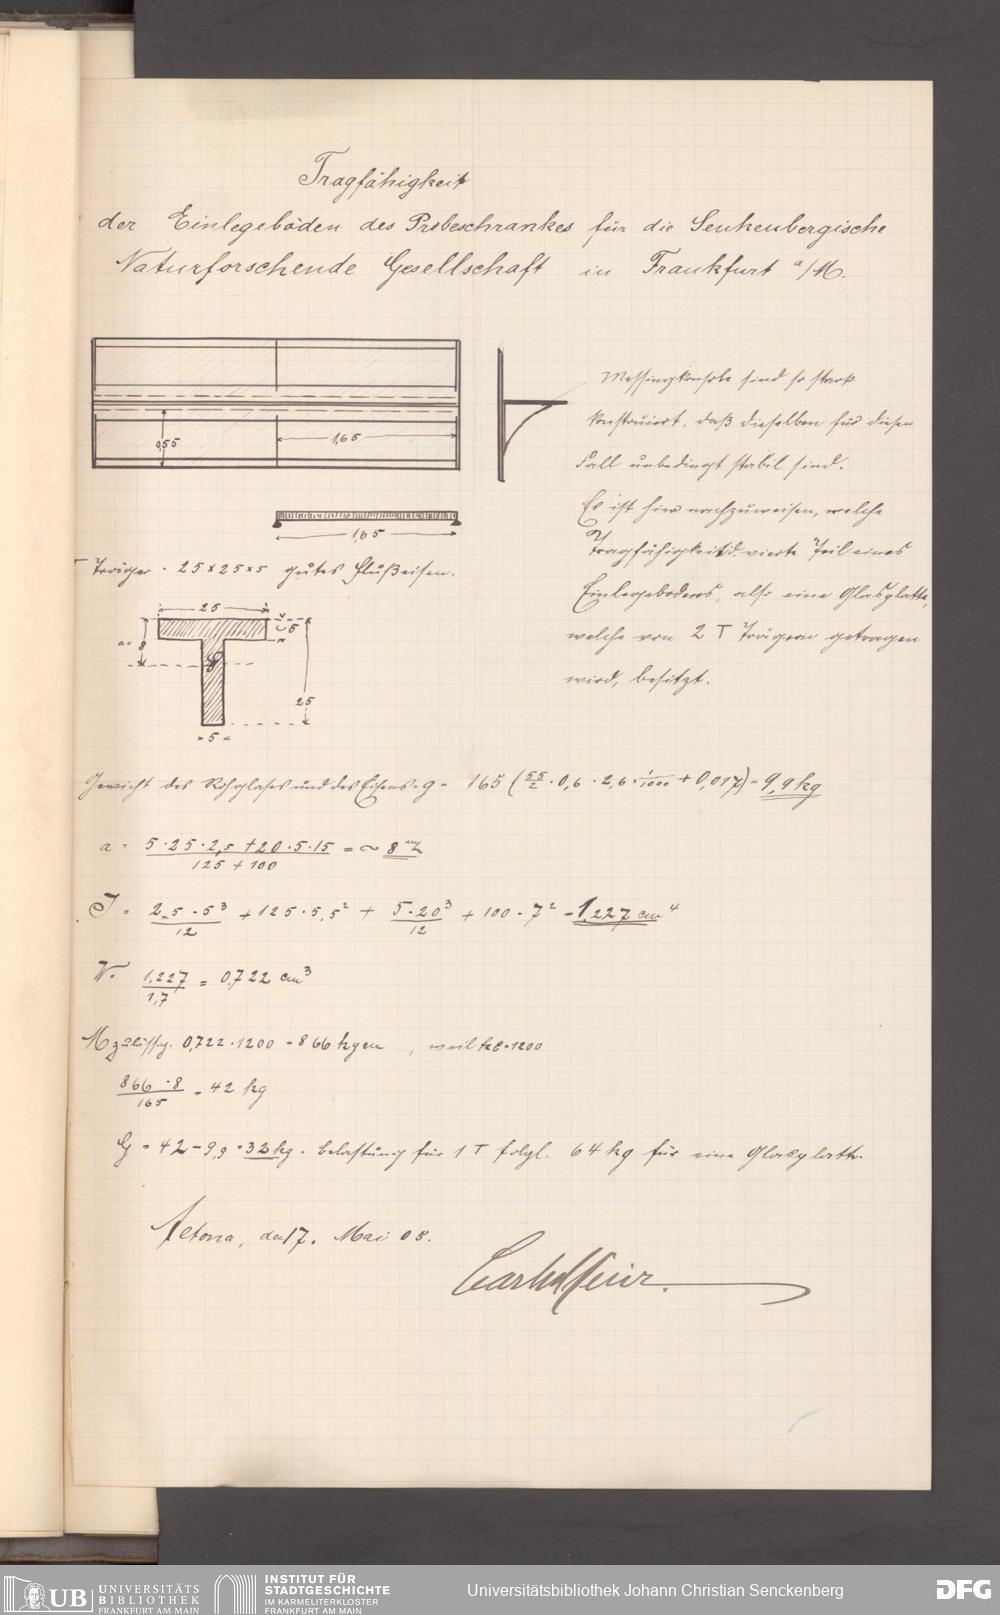 Tragfähigkeit
der Einlegeböden des Probeschrankes für die Senkenbergische
Naturforschende Gesellschaft in Frankfurt a/M.
0,55
1,65
Messingkonsole sind so stark
konstruiert, daß dieselben für diesen
Fall unbedingt stabil sind.
Es ist hier nachzuweisen, welche
Tragfähigkeit d. vierte Teil eines
Einlegebodens, also eine Glasplatte,
welche von 2 T Trägern getragen
wird, besitzt.
1,65
T Träger · 25 x 25 x 5 gutes Flußeisen.
25
5
a = 8
25
5
Gewicht des Rohglases und des Eisens = g = 165 (55/2 · 0,6 · 2,6 · 1/1000 + 0,017) = 9,9 kg
a = 5·25·2,5 + 20·5·15 / 125 + 100 = ~ 8 m/m
J = 2,5 · 5³ / 12 + 125 · 5,5² + 5·20³ / 12 + 100 · 7² = 1,227 cm⁴
W = 1,227 / 1,7 = 0,722 cm³
M zulässig. 0,722 · 1200 = 866 kgcm, weil = 1200
866 · 8 / 165 = 42 kg
G = 42 – 9,9 = 32 kg. Belastung für 1 T folgl. 64 kg für eine Glasplatte.
Altona, den 17. Mai 08.
UB UNIVERSITÄTS
BIBLIOTHEK
FRANKFURT AM MAIN
INSTITUT FÜR
STADTGESCHICHTE
IM KARMELITERKLOSTER
FRANKFURT AM MAIN
Universitätsbibliothek Johann Christian Senckenberg
DFG